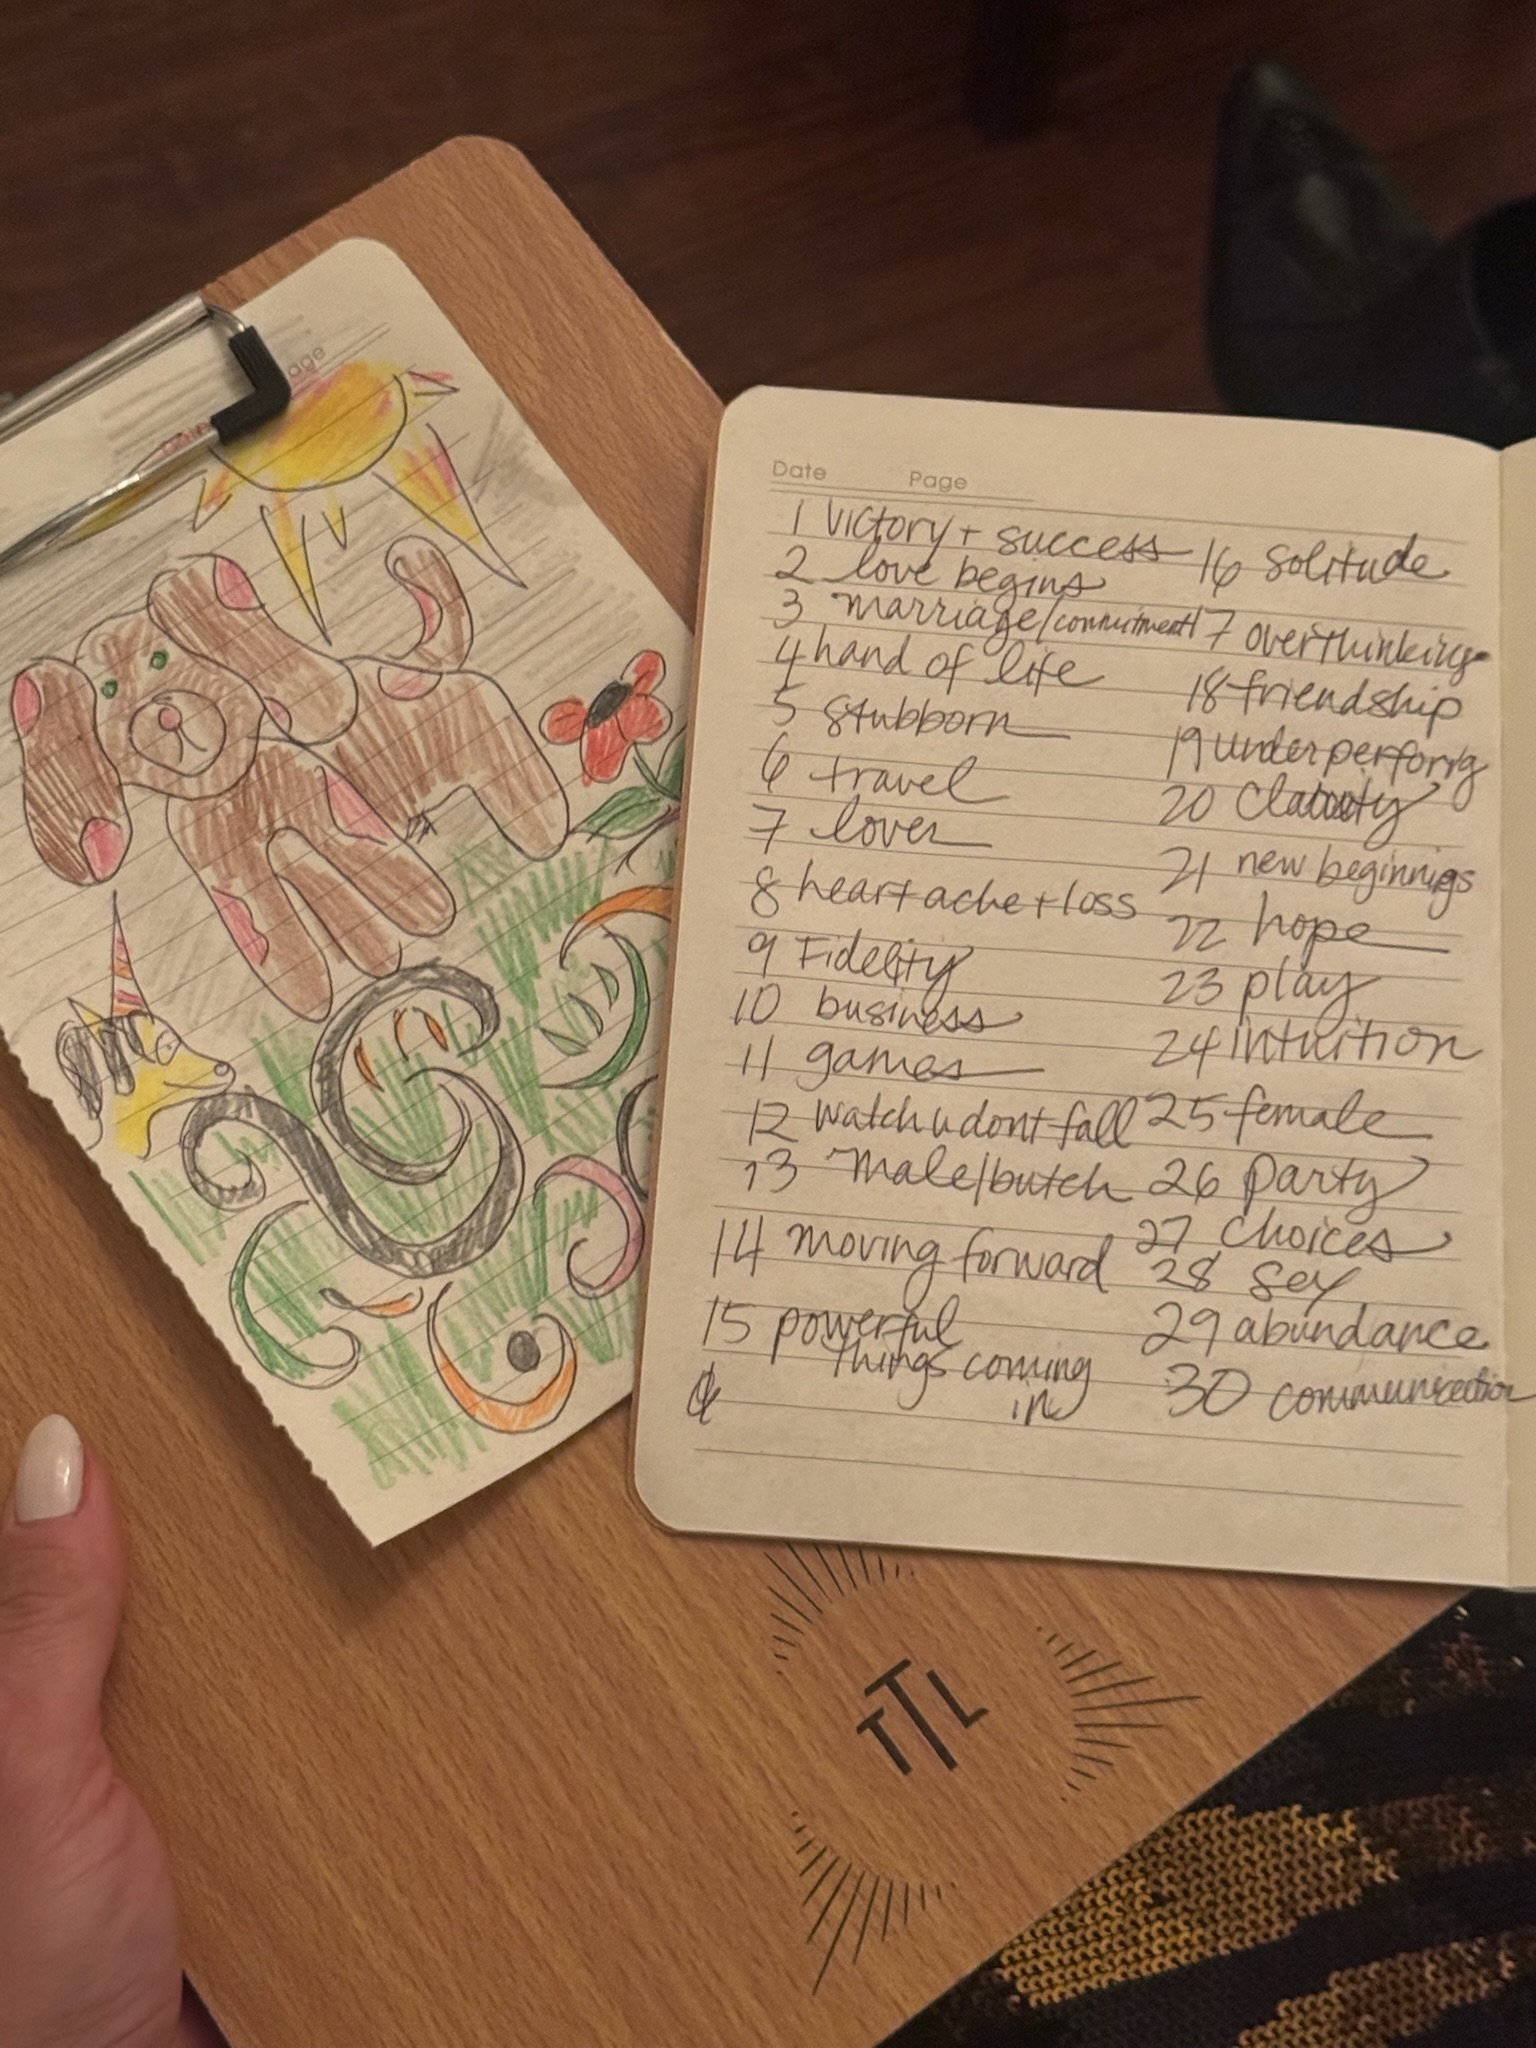 age
Date Page
1 victory + success
2 love begins
3 marriage/commitment
4 hand of life
5 stubborn
6 travel
7 lover
8 heartache + loss
9 Fidelity
10 business
11 games
12 watch u dont fall
13 Male/butch
14 moving forward
15 powerful
things coming
in
16 solitude
17 overthinking
18 friendship
19 underperforng
20
21 new beginnigs
22 hope
23 play
24 intuition
25 female
26 party
27 choices
28 sex
29 abundance
30 communication
TTL